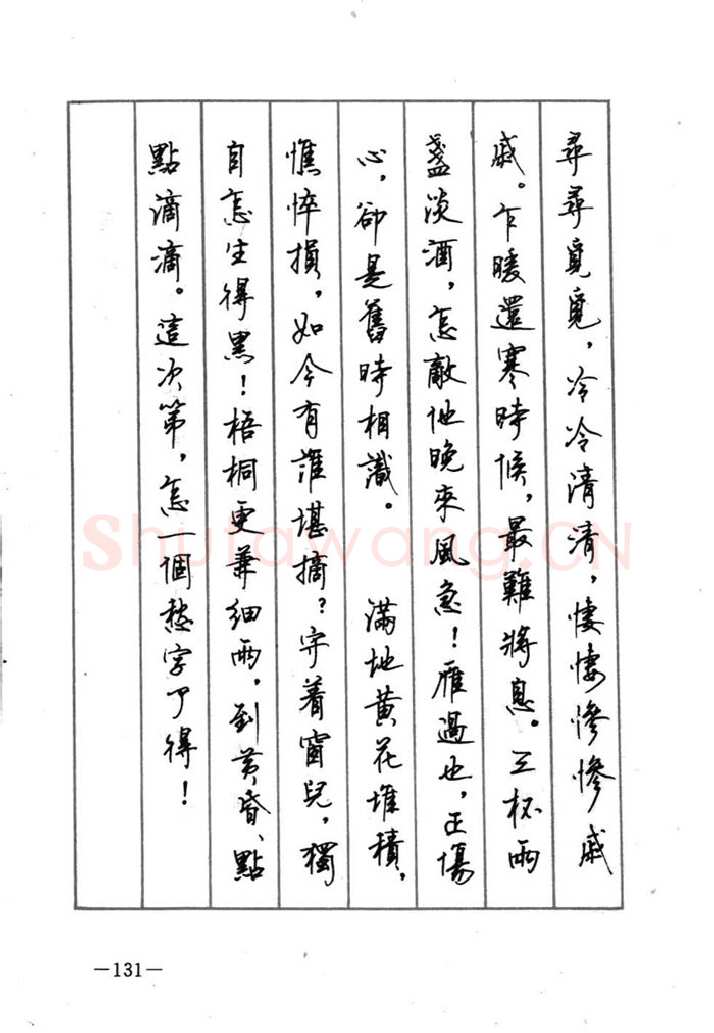 尋尋覓覓，冷冷清清，悽悽慘慘戚
戚。乍暖還寒時候，最難將息。三杯兩
盞淡酒，怎敵他晚來風急！雁過也，正傷
心，卻是舊時相識。　滿地黃花堆積，
憔悴損，如今有誰堪摘？守着窗兒，獨
自怎生得黑！梧桐更兼細雨。到黃昏、點
點滴滴。這次第，怎一個愁字了得！
Shufawang.CN
—131—